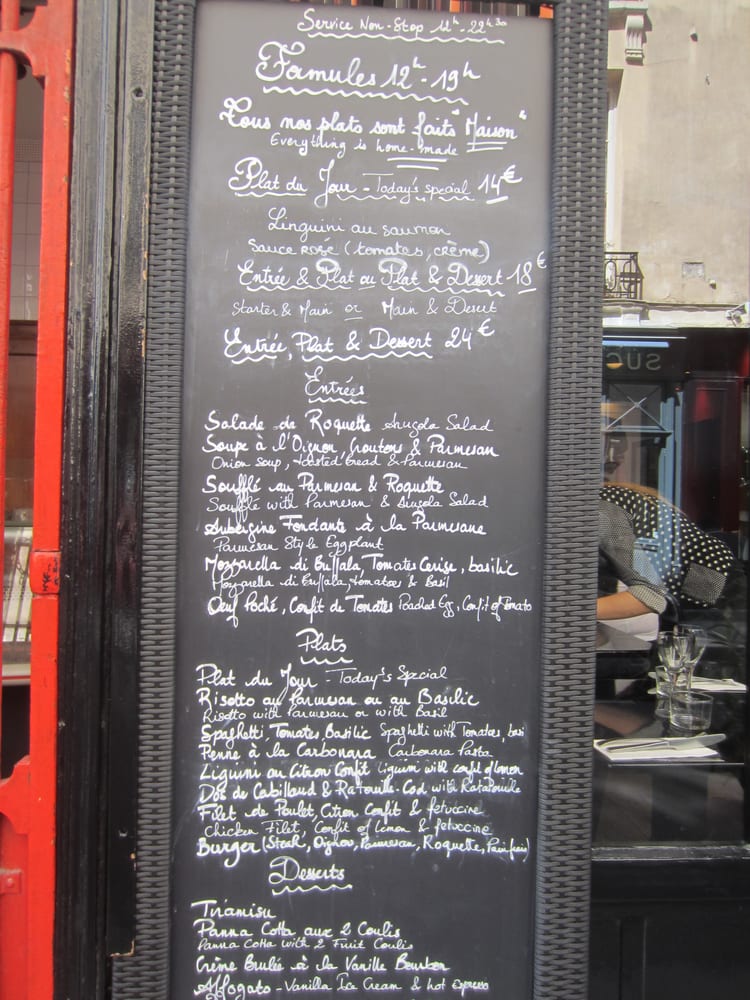 Service Non-Stop 12h-22h30
Formules 12h-19h
Tous nos plats sont faits "Maison"
Everything is home-made
Plat du Jour - Today's special 14€
Linguini au saumon
Sauce rosé (tomates, crème)
Entrée & Plat ou Plat & Dessert 18€
Starter & Main or Main & Desert
Entrée, Plat & Dessert 24€
Entrées
Salade de Roquette Arugola Salad
Soupe à l'Oignon, Croutons & Parmesan
Onion Soup, toasted bread & Parmesan
Soufflé au Parmesan & Roquette
Soufflé with Parmesan & Arugola Salad
Aubergine Fondante à la Parmesane
Parmesan Style Eggplant
Mozzarella di Buffala, Tomates Cerise, basilic
Mozzarella di Buffala, tomatoes & Basil
Oeuf Poché, Confit de Tomates Poached Egg, Confit of Tomato
Plats
Plat du Jour - Today's Special
Risotto au Parmesan ou au Basilic
Risotto with Parmesan or with Basil
Spaghetti, Tomates, Basilic Spaghetti with Tomatoes, basi
Penne à la Carbonara Carbonara Pasta
Liguini au Citron Confit Liguini with confit of lemon
Dos de Cabillaud & Ratatouille Cod with Ratatouille
Filet de Poulet, Citron Confit & fetuccine
Chicken Filet, Confit of limon & fetuccine
Burger (Steak, Oignon, Parmesan, Roquette, Pain frais)
Desserts
Tiramisu
Panna Cotta aux 2 Coulis
Panna Cotta with 2 Fruit Coulis
Crème Brulée à la Vanille Bourbon
Affogato - Vanilla Ice Cream & hot Espresso